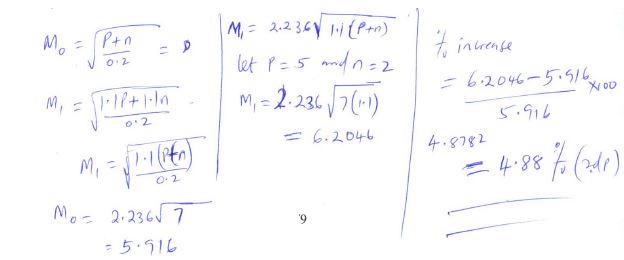 M₀ = √((P+n)/0.2) =
M₁ = √((1.1P+1.1n)/0.2) .
M₁ = √(1.1(P+n)/0.2)
M₀ = 2.236√7
= 5.916
M₁ = 2.236√(1.1(P+n))
let P = 5 and n = 2
M₁ = 2.236√(7(1.1))
= 6.2046
9
% increase
= (6.2046 - 5.916)/5.916 ×100
4.8782
= 4.88 % (2dp)